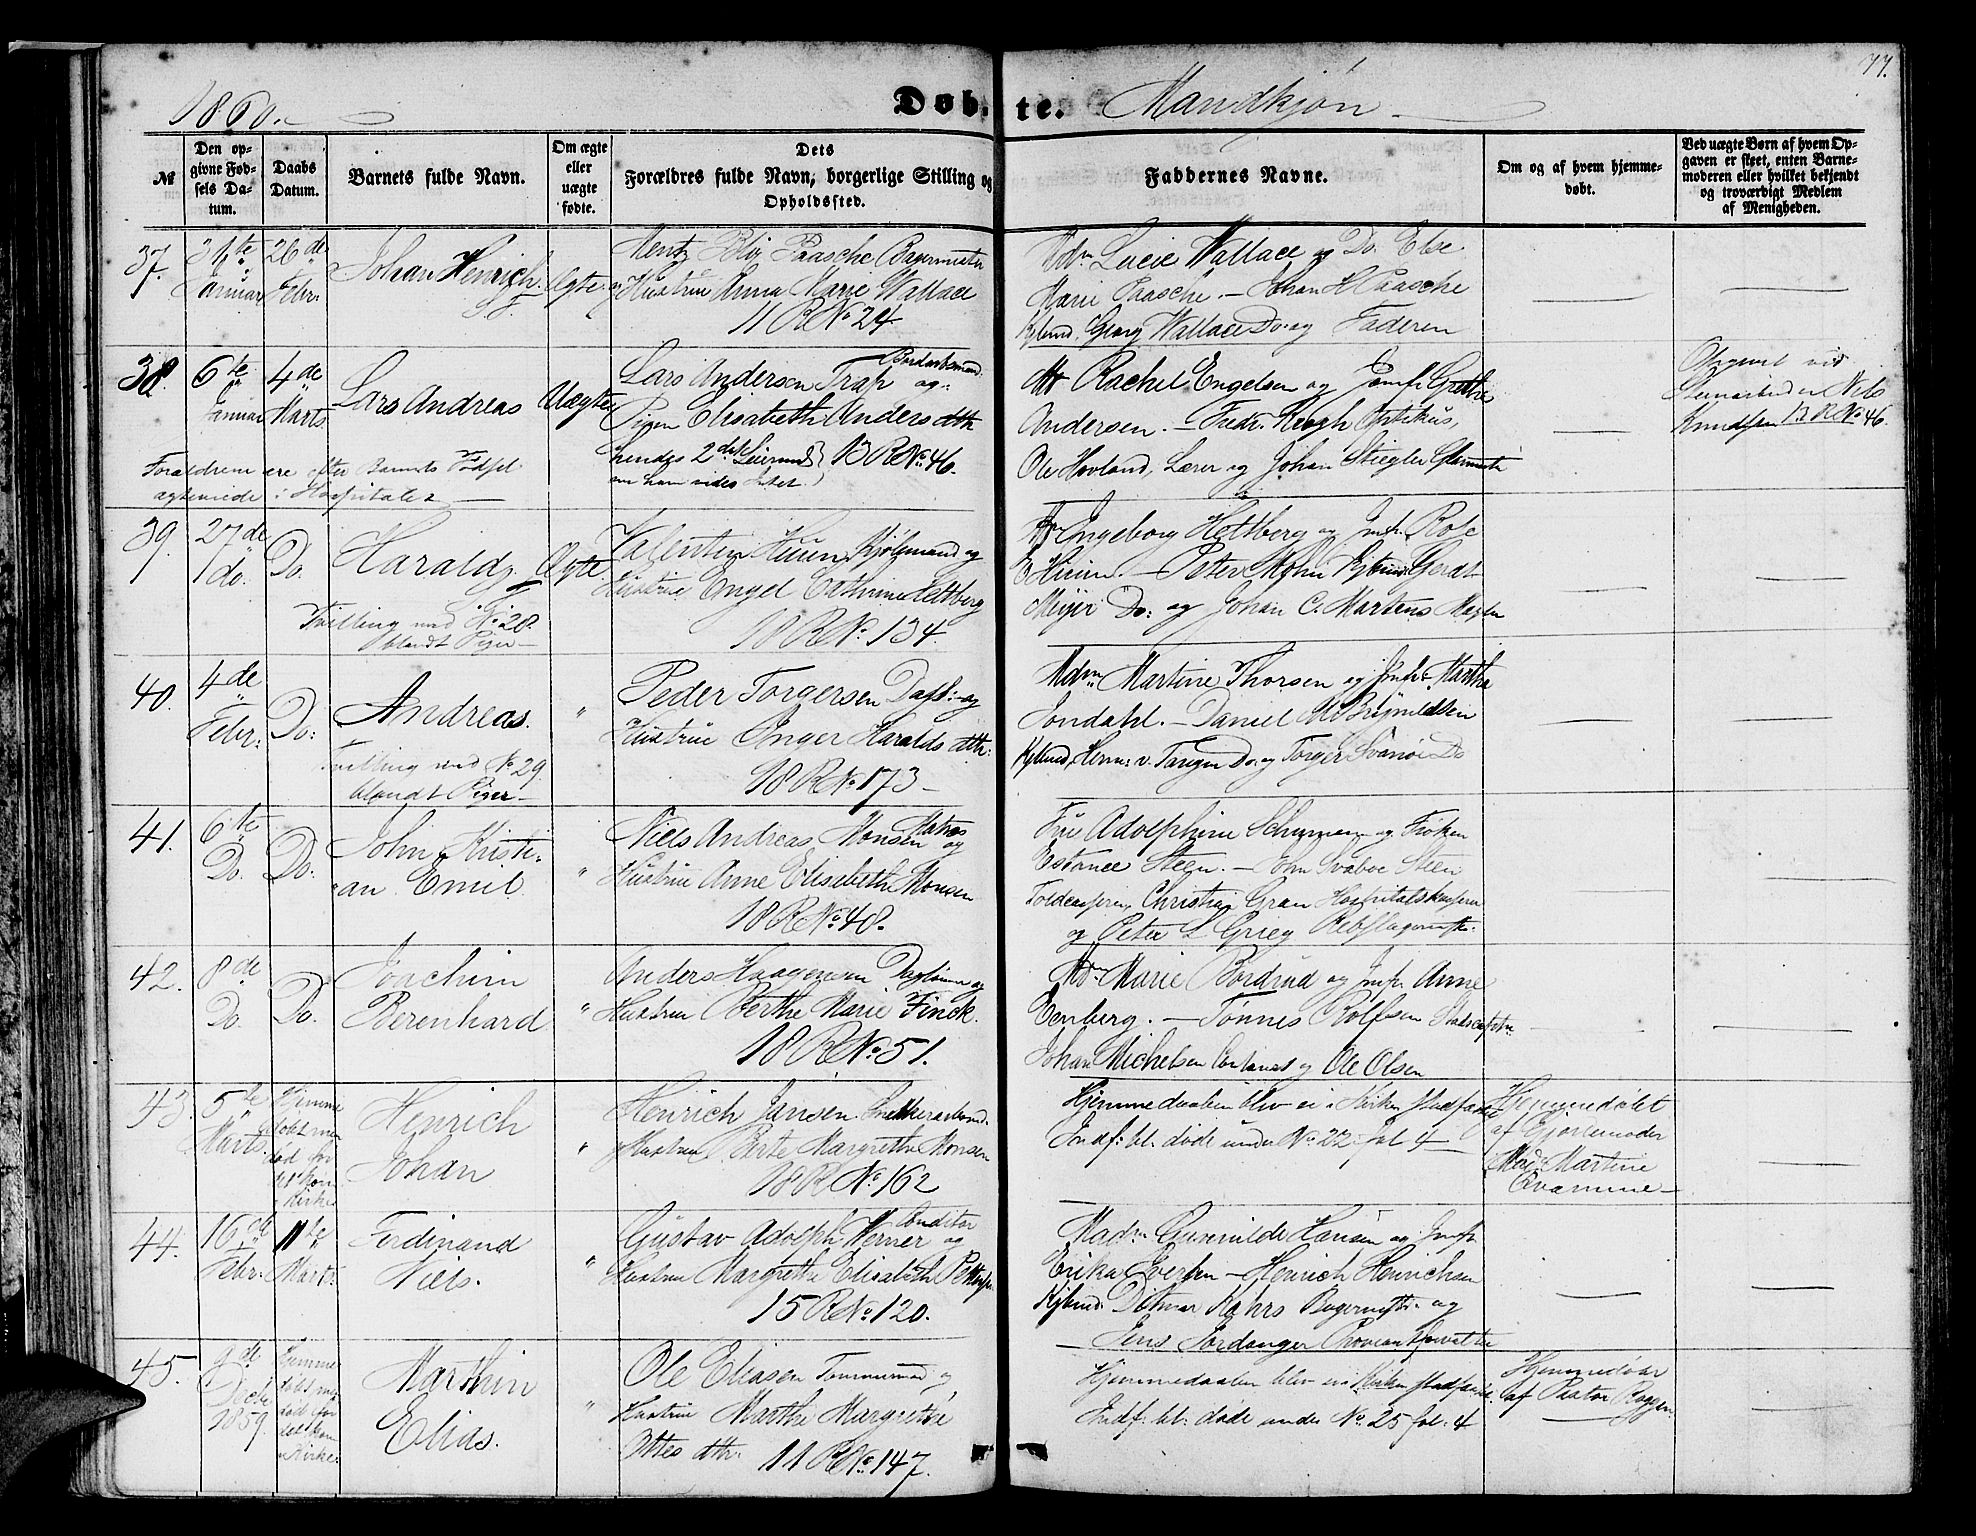 77.
1860.
Døbte. Mandkjøn
№
Den opgivne Fødsels Datum.
Daabs Datum.
Barnets fulde Navn.
Om ægte eller uægte fødte.
Dets Forældres fulde Navn, borgerlige Stilling og Opholdssted.
Faddernes Navne.
Om og af hvem hjemmedøbt.
Ved uægte Børn af hvem Opgaven er skeet, enten Barnemoderen eller hvilket bekjendt og troværdigt Medlem af Menigheden.
37. 31te Januar
26de Febr:
Johan Henrich
Ægte
Paasche Bagermester
Hustrue Anna Marie Wallace
11 R No 24.
Mdm Lucie Wallace og Do. Else
Marie Paasche. – Johan H Paasche
Kjbmd. Georg Wallace Do. og Faderen
38. 6te Januar
4de Marts
Lars Andreas
Uægte
Lars Andersen Trap og
Pigen Elisabeth Andersdtr
hendes 2det Leiermaal
13 R No 46.
Forældrene ere efter Barnets Fødsel
ægteviede i Hospitalet
Rachel Engelsen og Jomfr. Grethe
Andersen. – Fredr. Krogh Optikus,
Ole Hovland, Lærer og Johan Stiegler
Opgivet ved
Steinarbeider Nils
Knudsen 13 R No 46.
39. 27de do.
Do.
Harald
Ægte.
Tvilling med No 28.
blandt Piger –
Valentin
og
Hustrue Engel Cathrine
18 R No 134.
Ingeborg Holtberg og Jmfr.
Peter Mohn Kjbmd. Gerdt
Meijer Do: og Johan C. Martens
40. 4de Febr:
Do:
Andreas.
"
Tvilling med No 29
blandt Piger –
Peder Torgersen og
Hustrue Inger Haralds dtr:
18 R No 173 –
Mdm Martine Thorsen og Jmfr. Martha
Jondahl. – Daniel M Brynildsen
Kjbmd, Herm: v. Tangen Do: og Torger Svanøe Do
41. 6te Do.
Do:
John Kristi-
an Emil
"
Niels Andreas Monsen Matros og
Hustrue Anne Elisabeth Monsen
18 R No 40.
Frue Adolphine og Frøken
Steen. – John Svaboe Steen
Toldcasserer, Christian Gran Hospitalskasserer
og Peter L. Grieg Rebslagermstr.
42. 8de Do.
Do.
Joachim
Berenhard
"
Anders Haagensen og
Hustrue Berthe Marie Finck.
18 R No 51.
Marie Bordrud og Jmfr. Anne
Eenberg. – Tønnes Rolfsen
Johan Michelsen og Ole Olsen
43. 5te Marts
Hjemme
døbt men
død før
Kirke
Henrich
Johan
"
Henrich Jansen Snekkerarbmd.
Hustrue Berte Margrethe Monsen
18 R No 162
Hjemmedaaben blev ei i Kirken stadfæstet
Indf: bl: døde under No 22 fol 4
Hjemmedøbt
af Gjordemoder
Mad. Martine
Qvamme –
44. 16de Febr:
11te Marts.
Ferdinand
Niels.
"
Gustav Adolph Werner Conditor og
Hustrue Margrethe Elisabeth
15 R No 120.
Madm Gunnilde Hansen og Jmfr
Erika Eversen – Henrich Henrichsen
Kjbmd. Ditmar Kahrs Bagermstr. og
Jens Sordanger Proviantforvalter
45. 9de Decbr 1859.
Hjemme
døbt men
død før
det kom
i Kirke.
Marthin
Elias.
"
Ole Eliasen Tømmermd og
Hustrue Marthe Margrethe
Ottes dtr. 11 R No 147.
Hjemmedaaben blev ei i Kirken stadfæstet.
Indf: bl: døde under No 25 fol: 4
Hjemmedøbt
af Pastor Roggen.